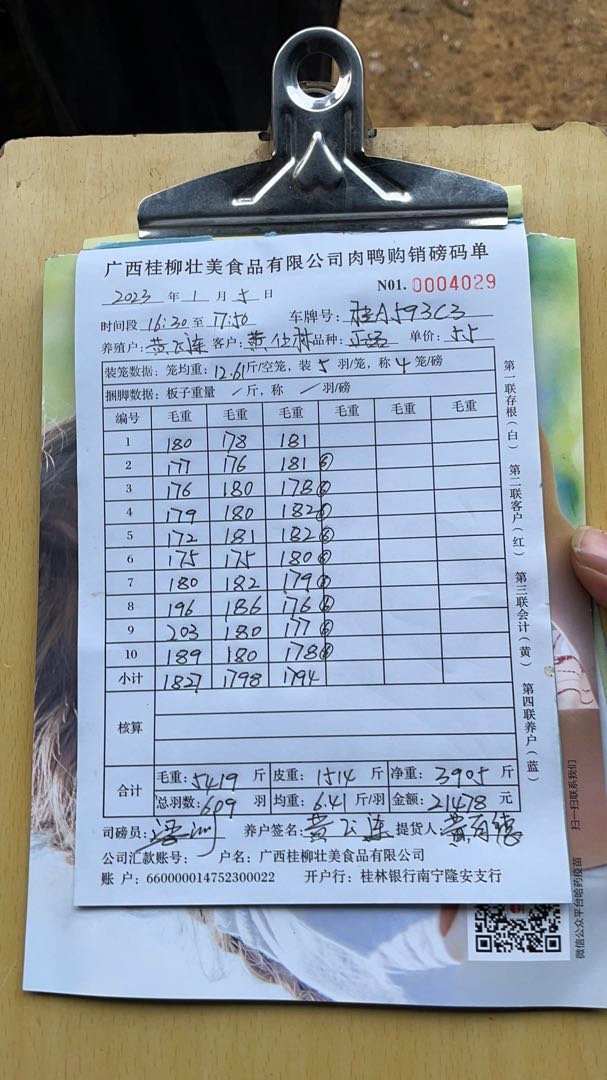 广西桂柳壮美食品有限公司肉鸭购销磅码单
2023 年 1 月 5 日 N01. 0004029
时间段 16:30 至 17:50 车牌号: 桂A593C3
养殖户: 黄飞连 客户: 黄仕林 品种: 单价: 5.5
装笼数据: 笼均重: 12.61 斤/空笼, 装 5 羽/笼, 称 4 笼/磅
捆脚数据: 板子重量 / 斤, 称 / 羽/磅
编号 毛重 毛重 毛重 毛重 毛重 毛重
1 180 178 181
2 177 176 181 ⑥
3 176 180 178 ⑥
4 179 180 182 ⑥
5 172 181 182 ⑥
6 175 175 180 ⑥
7 180 182 179 ⑥
8 196 186 176 ⑥
9 203 180 177 ⑥
10 189 180 178 ⑥
小计 1827 1798 1794
核算
合计 毛重: 5419 斤 皮重: 1514 斤 净重: 3905 斤
总羽数: 609 羽 均重: 6.41 斤/羽 金额: 21478 元
司磅员: 养户签名: 黄飞连 提货人:
公司汇款账号: 户名: 广西桂柳壮美食品有限公司
账 户: 660000014752300022 开户行: 桂林银行南宁隆安支行
第一联存根(白) 第二联客户(红) 第三联会计(黄) 第四联养户(蓝)
扫一扫联系我们
微信公众平台哈药疫苗